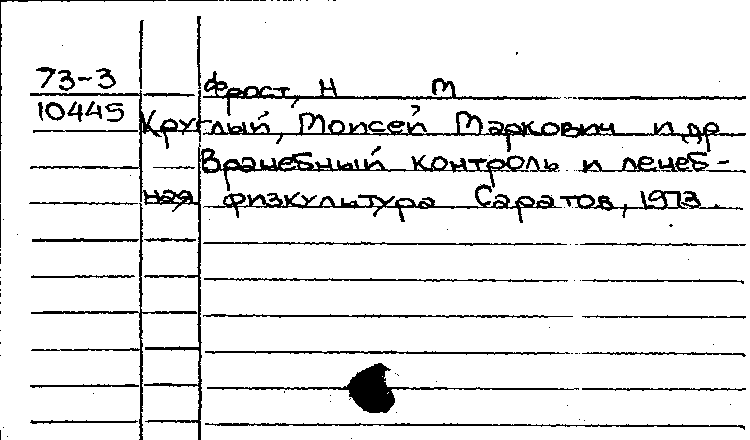 73-3 Фрост, Н М
10445 Круглый, Моисей Маркович и др
Врачебный контроль и лечеб-
ная физкультура Саратов, 1973.